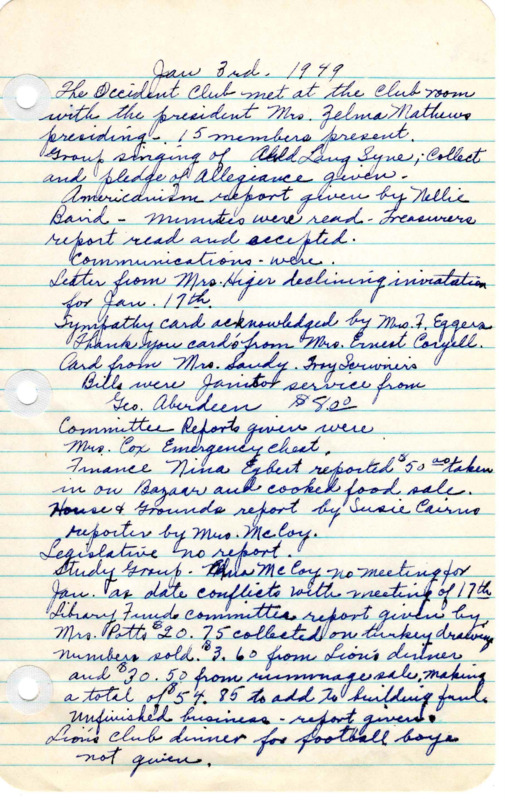 Jan 3rd. 1949
The Occident Club met at the club room
with the president Mrs. Zelma Mathews
presiding. 15 members present.
Group singing of Auld Lang Syne; Collect
and pledge of Allegiance given -
Americanism report given by Nellie
Band - minutes were read - Treasurers
report read and accepted.
Communications - were.
Letter from Mrs. Higer declining invitation
for Jan. 17th.
Sympathy card acknowledged by Mrs. F. Eggers
Thank you cards from Mrs. Ernest Coryell.
Card from Mrs. Sandy. Troy Scrivners
Bills were Janitor service from
Geo. Aberdeen $8.00
Committee Reports given were
Mrs. Cox Emergency chest.
Finance Nina Egbert reported $50.00 taken
in on Bazaar and cooked food sale.
House & Grounds report by Susie Cairns
reporter by Mrs. McCoy.
Legislative no report.
Study Group - McCoy no meeting for
Jan. as date conflicts with meeting of 17th
Library Fund committee report given by
Mrs. Potts $20.75 collected on turkey drawing
numbers sold. $3.60 from Lion's dinner
and $30.50 from rummage sale, making
a total of $54.85 to add to building fund.
Unfinished business - report given.
Lions Club dinner for football boys
not given.